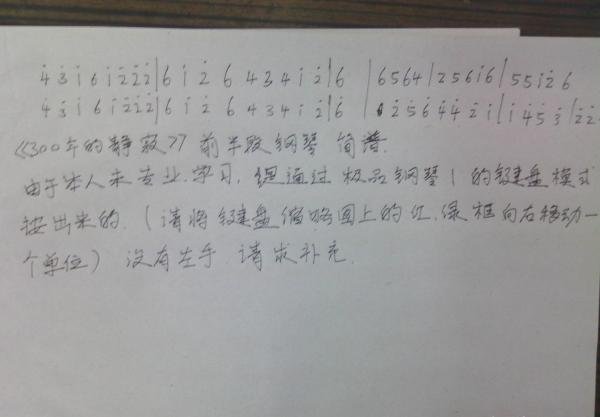 4̇ 3̇ i 6 i 2̇ 2̇ 2̇ | 6 i 2̇ 6 4 3 4 i 2̇ | 6 | 6 5 6 4 | 2 5 6 i 6 | 5 5 i 2̇ 6
4̇ 3̇ i 6 i 2̇ 2̇ 2̇ | 6 i 2̇ 6 4 3 4 i 2̇ | 6 2̇ 5̇ 6̇ 4̇ 4̇ 2̇ i | i 4̇ 5̇ 3̇ | 2̇ 2̇
《300年的静寂》前半段钢琴 简谱.
由于本人未专业学习,但通过极品钢琴1的键盘模式
按出来的.(请将键盘缩略图上的红,绿框向右移动一
个单位)没有左手.请求补充.